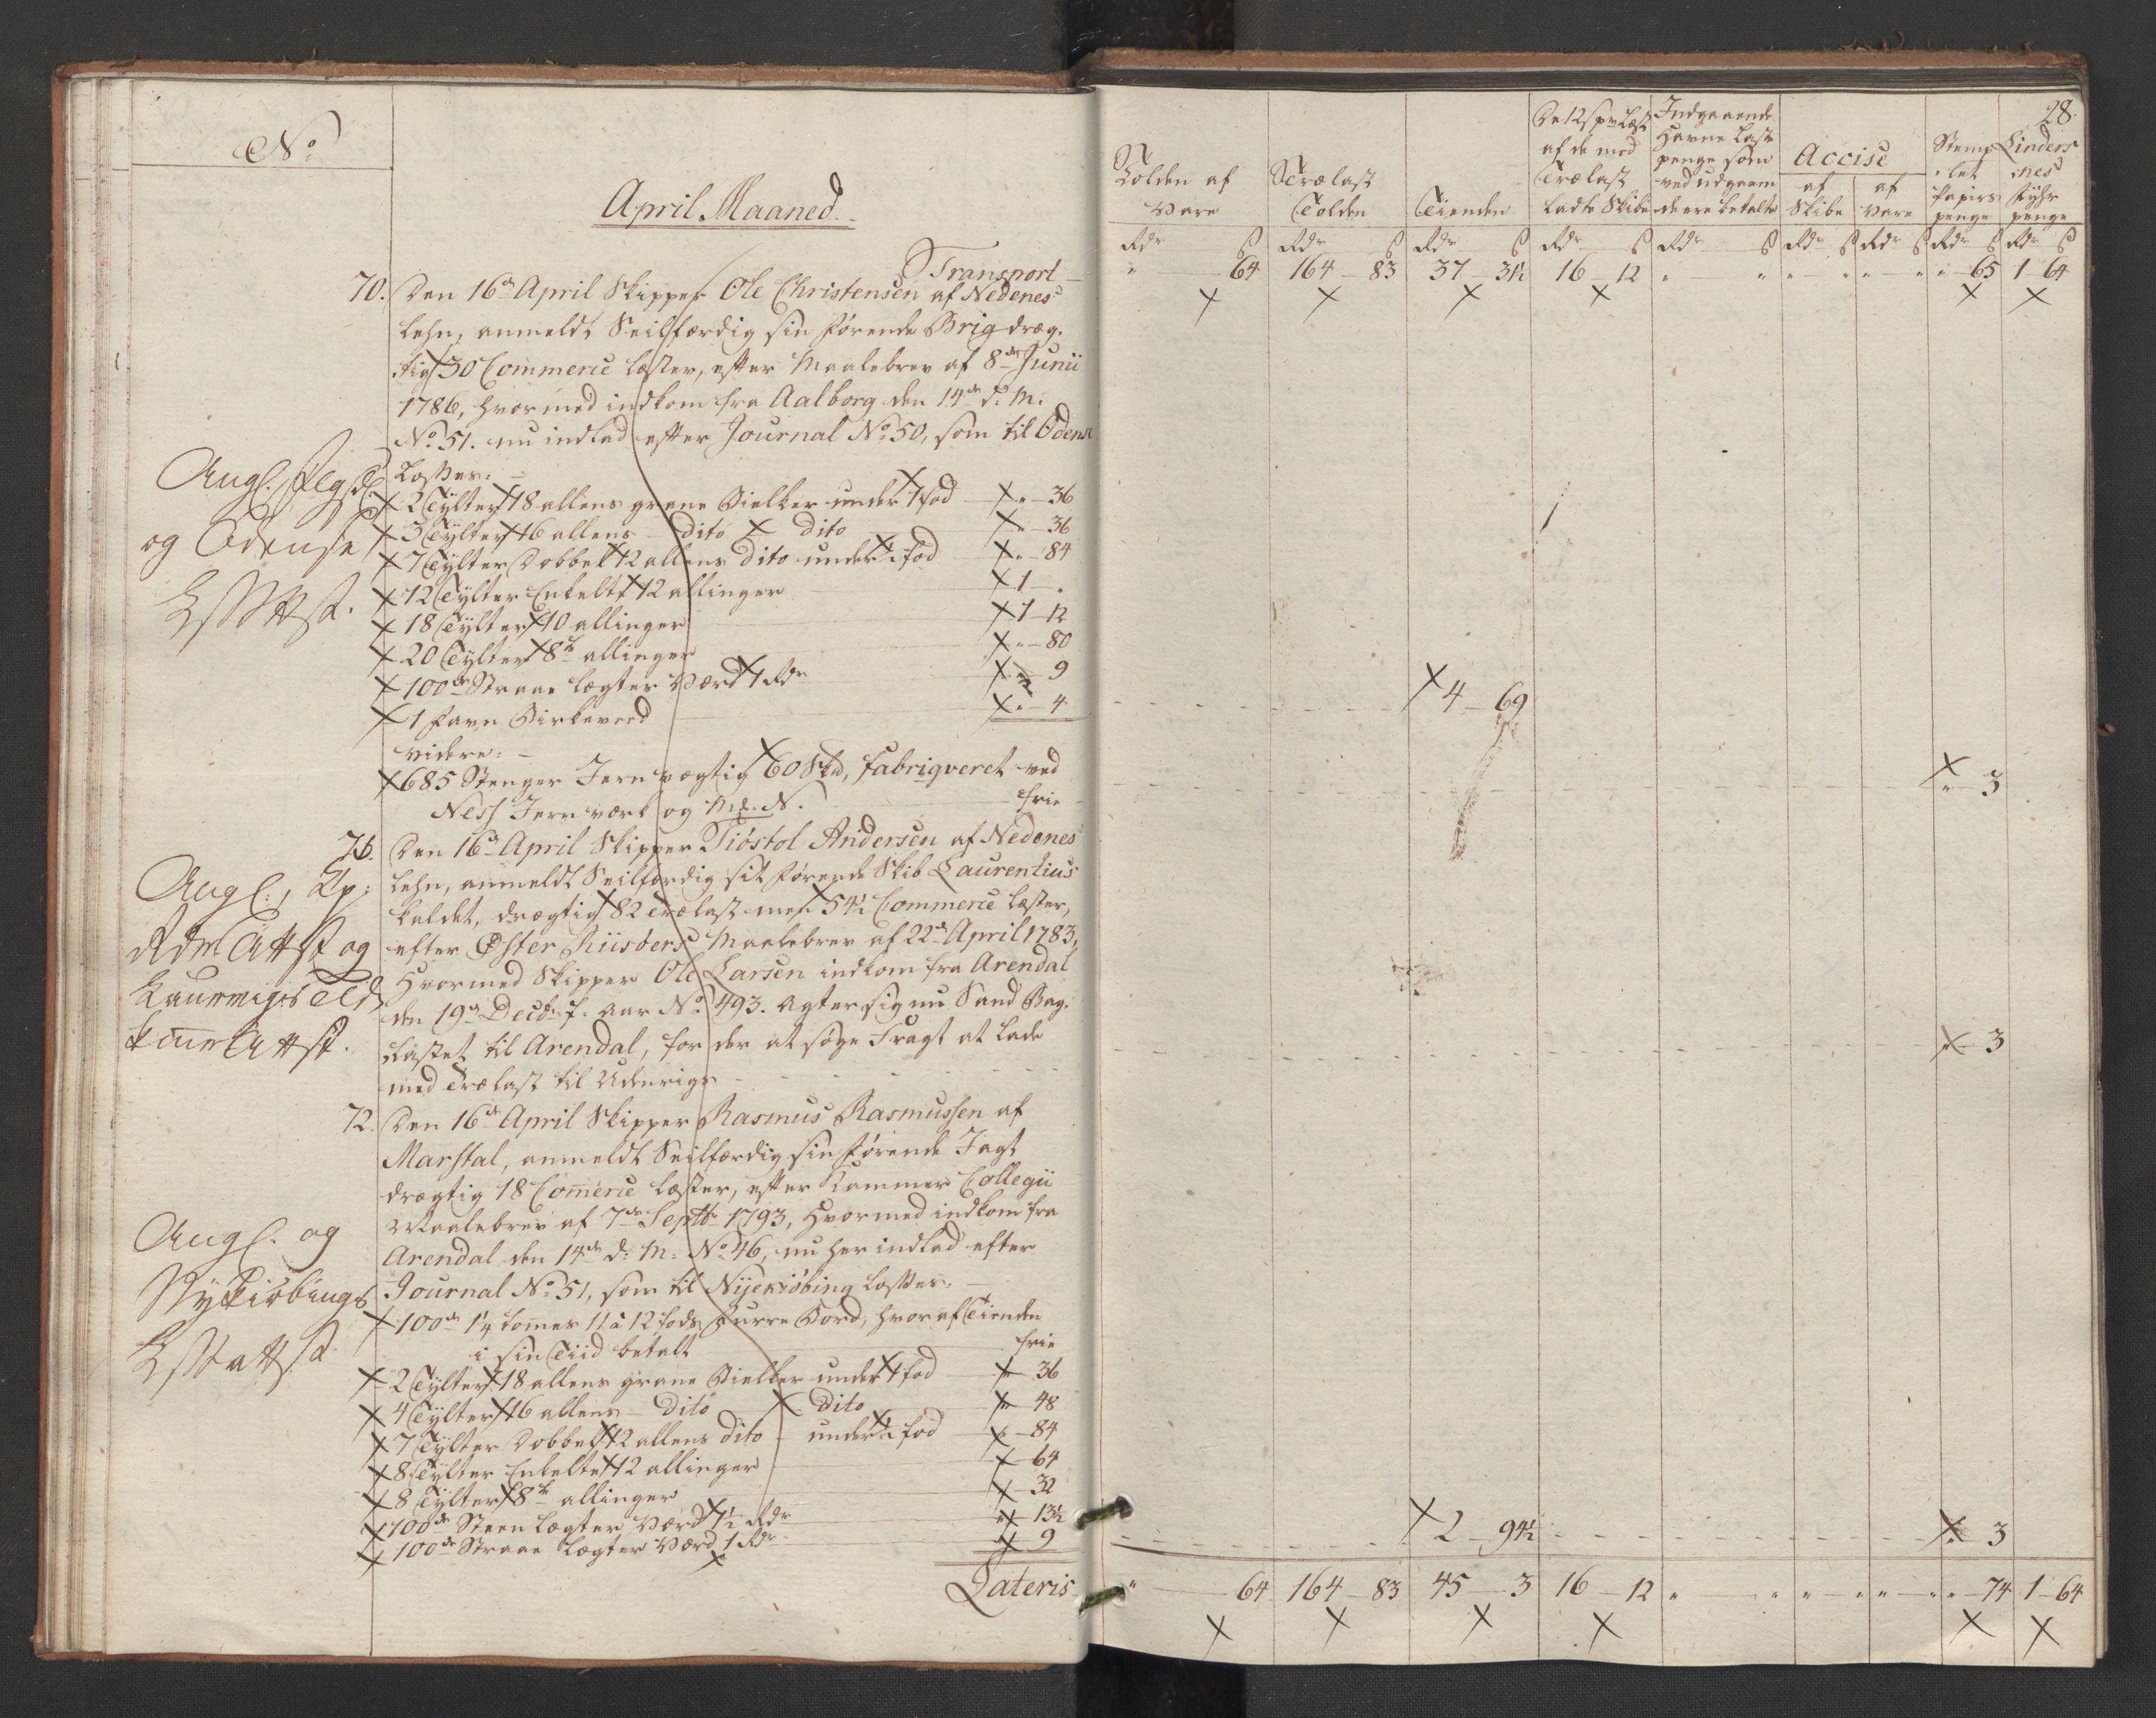 No
April Maaned.
Transport
70. Den 16de April Skipper Ole Christensen af Nedenes
Lehn, anmeldt Seilfærdig sin førende Brig dræg-
tig 30 Commerce læster, efter Maalebrev af 8de Junii
1786, hvormed indkom fra Aalborg den 14de d: M:
No 51. nu indlad efter Journal No 50, som til Odense
losses:
2 Tylter 18 allens grane Bielker under 1 fod " 36
3 Tylter 16 allens dito dito " 36
7 Tylter Dobbelt 12 allens dito under ½ fod " 84
12 Tylter Enkelt 12 allinger 1 "
18 Tylter 10 allinger 1 12
20 Tylter 8te allinger " 80
100de Straae lægter Værd 1 Rdr " 9
1 Favn Birkeved " 4
videre:
685 Stenger Jern vægtig 60 Skd, fabriqveret ved
Ness Jernværk og frie
Angl.
og Odense
71. Den 16de April Skipper Tiöstol Andersen af Nedenes
Lehn, anmeldt Seilfærdig sit førende Skib Laurentius
kaldet, drægtig 82 Trælast men 54½ Commerce læster,
efter Öster Riisöers Maalebrev af 22de April 1783,
Hvormed Skipper Ole Larsen indkom fra Arendal
den 19de Decbr f. Aar No 493. agter sig nu Sand Bag-
lastet til Arendal, for der at søge Fragt at lade
med Trælast til Udenrigs
Angl:
og
72. Den 16de April Skipper Rasmus Rasmussen af
Marstal, anmeldt Seilfærdig sin førende Jagt
drægtig 18 Comerce læster, efter Kammer Collegii
Maalebrev af 7de Septbr 1793, Hvormed indkom fra
Arendal den 14de d: M: No 46, nu her indlad efter
Journal No 51, som til Nyekiöbing losses.
100de 1¼ tomes 11 à 12 fods furre Bord, hvoraf Tienden
i sin Tiid betalt frie
2 Tylter 18 allens grane Bielker under 1 fod 36
4 Tylter 16 allens dito dito 48
7 Tylter Dobbelt 12 allens dito under ½ fod 84
8 Tylter Enkelte 12 allinger 64
8 Tylter 8te allinger 32
100de Steen lægter Værd 1½ Rdr 13½
100de Straae lægter Værd 1 Rdr 9
Lateris
Angl. og
Nykiöbings
28.
Tolden af Vare
Trælast Tolden
Tienden
De 12 s pr Læst af de med Trælast ladte Skibe
Indgaaende Havne Laste penge som ved udgaaende ere betalte
Accise
af Skibe
af Vare
Stemplet Papiirs penge
Linders nes Fyhr penge
Rdr s Rdr s Rdr s Rdr s Rdr s Rdr s Rdr s Rdr s Rdr s
" 64 164 83 37 31½ 16 12 " " " " " " " 65 1 64
4 69
" 3
" 3
2 94½ " 3
" 64 164 83 45 3 16 12 " " " " " " " 74 1 64